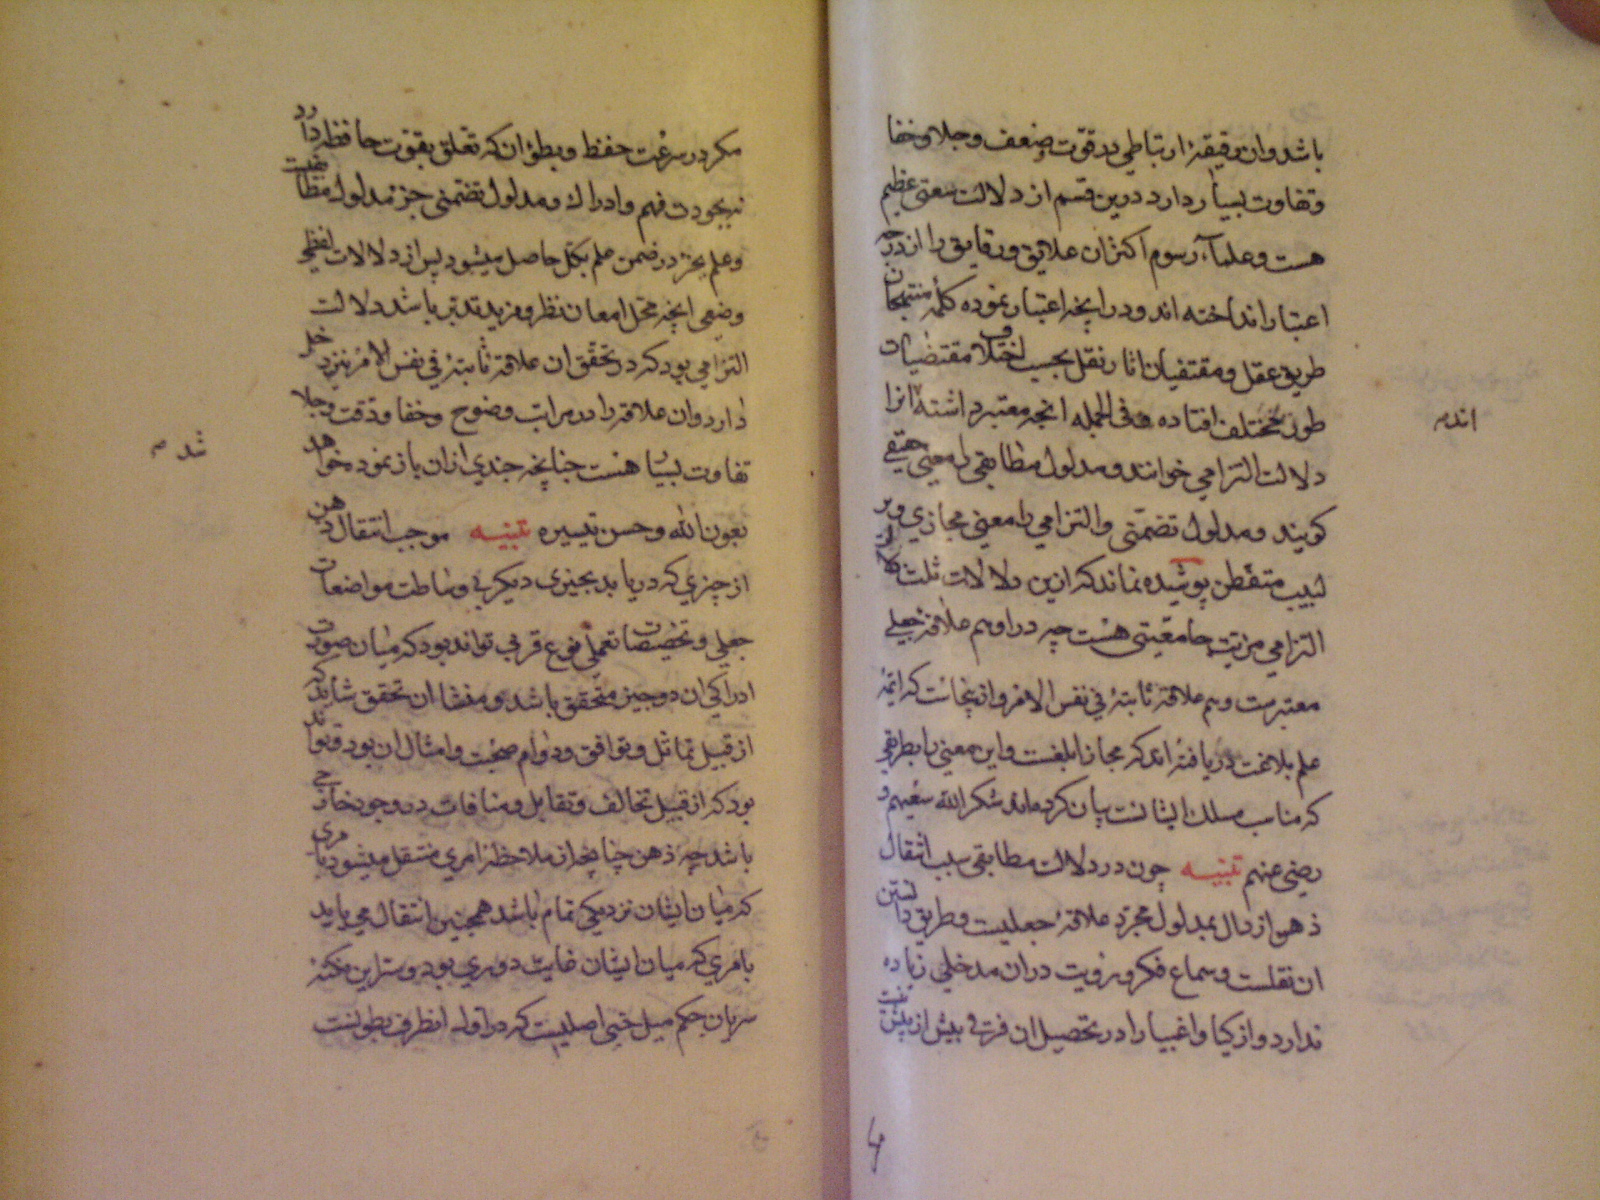 باشد وان دقیقهٔ ارتباطی در قوّت وضعف وجلا وخفا
وتفاوت بسیار دارد درین قسم از دلالت سعتی عظیم
هست وعلماء رسوم اکثران علایق ورقایق را از درجه
اعتبار انداخته اند ودر انچه اعتبار نموده کلمهٔ منتهجان
طریق عقل ومقتفیان اثار نقل بحسب اختلاف مقتضیات
طور مختلف افتاده فی الجمله انچه معتبر داشته انرا
اند
دلالت التزامی خوانند ومدلول مطابقی را معنی حقیقی
کویند ومدلول تضمّنی والتزامی را معنی مجازی وبر
لبیب متفطن پوشیده نماند که ازین دلالات ثلث
التزامی مزیت جامعیتی هست چه دراوهم علاقهٔ جعلی
معتبرست وهم علاقهٔ ثابتهٔ فی نفس الامر وازینجاست که ائمهٔ
علم بلاغت دریافته اند که مجاز ابلغست واین معنی را بطریقی
که مناسب مسلک ایشانست بیان کرده‌اند شکر الله سعیهم و
رضی عنهم تنبیه چون در دلالت مطابقی سبب انتقال
ذهن از دال بمدلول مجرّد علاقهٔ جعلیست وطریق دانستن
ان نقلست وسماع فکر ورویت دران مدخلی زیاده
ندارد وازکیا واغبیا را در تحصیل ان فرقی بیش از پیش نیست
4
مکر در سرعت حفظ وبطؤ ان که تعلق بقوت حافظه دارد
نه بجودت فهم وادراک ومدلول تضمنی جزء مدلول مطابقست
وعلم بجزء در ضمن علم بکل حاصل میشود پس از دلالات لفظی
وضعی انچه محل امعان نظر ومزید تدبر باشد دلالت
التزامی بود که در تحقق ان علاقهٔ ثابتهٔ فی نفس الامر نیز دخل
دارد وان علاقه را در مراتب وضوح وخفا ودقت وجلا
تفاوت بسیار هست چنانچه چندی ازان باز نموده خواهد
شد
بعون الله وحسن تیسیره تنبیه موجب انتقال ذهن
از چیزی که دریابد بچیزی دیگر بی وساطت مواضعات
جعلی وتخصیصات تعملی نوع قربی تواند بود که میان صورت
ادراکی ان دو چیز متحقق باشد ومنشا ان تحقق شاید که
از قبیل تماثل وتوافق ودوام صحبت وامثال ان بود وتواند
بود که از قبیل تخالف وتقابل ومنافات در وجود خارجی
باشد چه ذهن چنانچه از ملاحظهٔ امری منتقل میشود بامری
که میان ایشان نزدیکی تمام باشد همچنین انتقال می یابد
بامری که میان ایشان غایت دوری بود وسرّ این نکته
سریان حکم میل حبّی اصلیست که در اوله انظرف بطونست